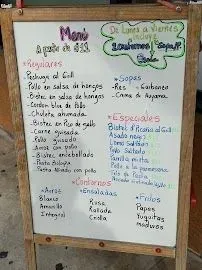 Menú
A partir de $11
De Lunes a Viernes
incluye
2 contornos
Sopa
*Regulares
- Pechuga al Grill
- Pollo en salsa de hongos
- Bistec en salsa de hongos
- Cordon blue de Pollo
- Chuleta ahumada
- Bistec en Pico de gallo
- Carne guisada
- Pollo guisado
- Arroz con pollo
- Bistec encebollado
- Pasta Bologña
- Pasta Alfredo con pollo
*Sopas
- Res
- Garbanzo
- Crema de Auyama
*Especiales
Asado negro
Lomo Saltado
Pollo Saltado
Parrilla mixta
Pollo a la parmesana
*Contornos
*Arroz
Blanco
Amarillo
Integral
*Ensaladas
Rusa
Rallada
Criolla
*Fritos
Papas
Yuquitas
maduros